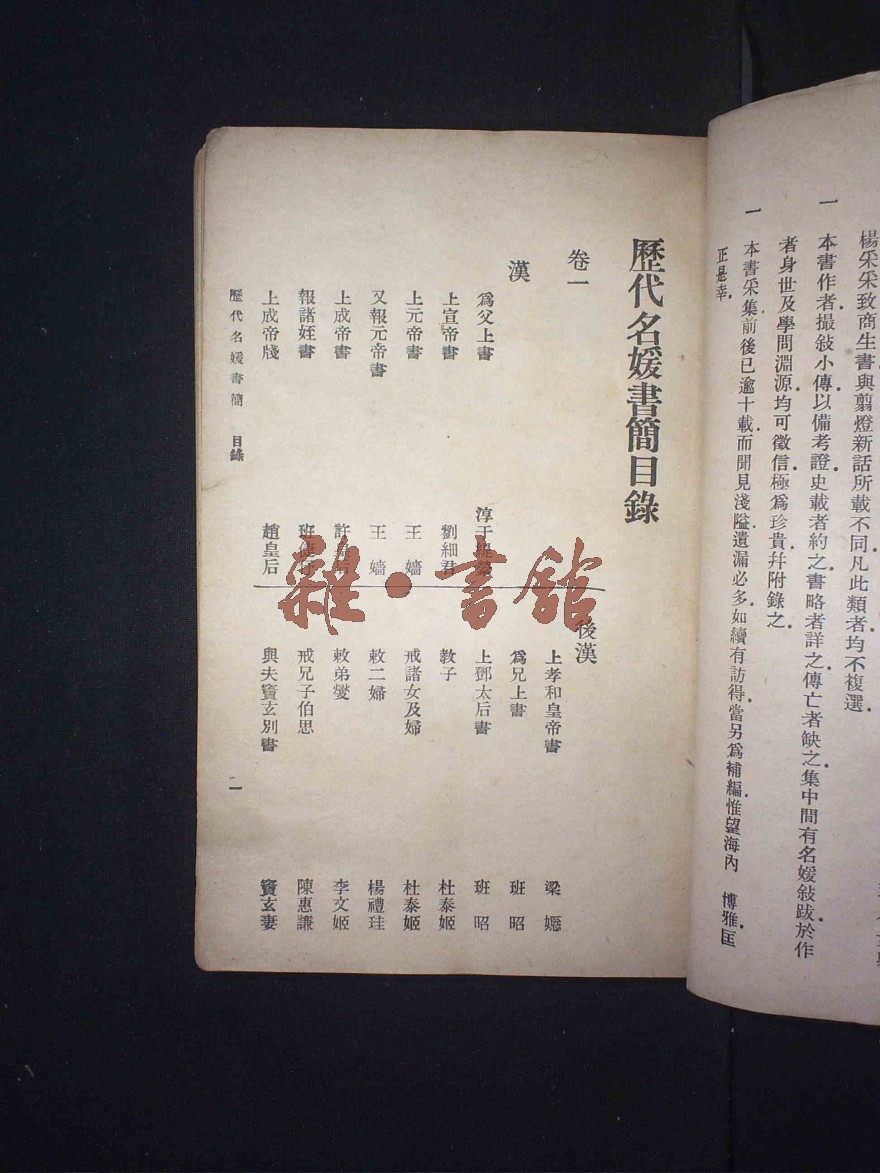 楊采采致商生書與剪燈新話所載不同凡此類者均不複選
一 本書作者撮敍小傳以備考證史載者約之書略者詳之傳亡者缺之集中間有名媛敍跋於作
者身世及學問淵源均可徵信極爲珍貴幷附錄之
一 本書采集前後已逾十載而聞見淺隘遺漏必多如續有訪得當另爲補編惟望海內 博雅匡
正是幸
歷代名媛書簡目錄
卷一
漢
爲父上書 淳于緹縈
上宣帝書 劉細君
上元帝書 王嬙
又報元帝書 王嬙
上成帝書 許皇后
報諸姪書 班倢伃
上成帝牋 趙皇后
後漢
上孝和皇帝書 梁嫕
爲兄上書 班昭
上鄧太后書 班昭
教子 杜泰姬
戒諸女及婦 杜泰姬
敕二婦 楊禮珪
敕弟燮 李文姬
戒兄子伯思 陳惠謙
與夫竇玄別書 竇玄妻
歷代名媛書簡 目錄
一
雜·書館